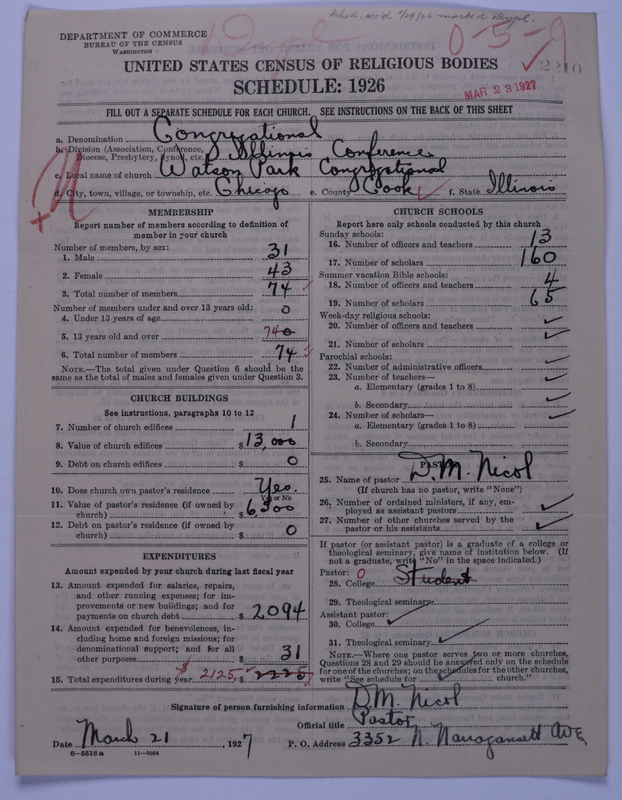 Sched. rec'd 7/29/26 marked
DEPARTMENT OF COMMERCE
BUREAU OF THE CENSUS
WASHINGTON
0-5-9
2210
UNITED STATES CENSUS OF RELIGIOUS BODIES
SCHEDULE: 1926
MAR 23 1927
FILL OUT A SEPARATE SCHEDULE FOR EACH CHURCH. SEE INSTRUCTIONS ON THE BACK OF THIS SHEET
a. Denomination Congregational
b. Division (Association, Conference, Diocese, Presbytery, Synod, etc.) Illinois Conference
c. Local name of church Watson Park Congregational
d. City, town, village, or township, etc. Chicago e. County Cook f. State Illinois
MEMBERSHIP
Report number of members according to definition of
member in your church
Number of members, by sex:
1. Male 31
2. Female 43
3. Total number of members 74
Number of members under and over 13 years old:
4. Under 13 years of age 0
5. 13 years old and over 74 0
6. Total number of members 74
NOTE.—The total given under Question 6 should be
same as the total of males and females given under Question 3.
CHURCH BUILDINGS
See instructions, paragraphs 10 to 12
7. Number of church edifices 1
8. Value of church edifices $ 13,000
9. Debt on church edifices $ 0
10. Does church own pastor's residence Yes.
Yes or No
11. Value of pastor's residence (if owned by
church) $ 6500
12. Debt on pastor's residence (if owned by
church) $ 0
EXPENDITURES
Amount expended by your church during last fiscal year
13. Amount expended for salaries, repairs,
and other running expenses; for im-
provements or new buildings; and for
payments on church debt $ 2094
14. Amount expended for benevolences, in-
cluding home and foreign missions; for
denominational support; and for all
other purposes $ 31
15. Total expenditures during year $ 2125 $ 2225
CHURCH SCHOOLS
Report here only schools conducted by this church
Sunday schools:
16. Number of officers and teachers 13
17. Number of scholars 160
Summer vacation Bible schools:
18. Number of officers and teachers 4
19. Number of scholars 65
Week-day religious schools:
20. Number of officers and teachers
21. Number of scholars
Parochial schools:
22. Number of administrative officers
23. Number of teachers—
a. Elementary (grades 1 to 8)
b. Secondary
24. Number of scholars—
a. Elementary (grades 1 to 8)
b. Secondary
PASTOR
25. Name of pastor D.M. Nicol
(If church has no pastor, write "None")
26. Number of ordained ministers, if any, em-
ployed as assistant pastors
27. Number of other churches served by the
pastor or his assistants
If pastor (or assistant pastor) is a graduate of a college or
theological seminary, give name of institution below. (If
not a graduate, write "No" in the space indicated.)
Pastor: 0
28. College Student
29. Theological seminary
Assistant pastor:
30. College
31. Theological seminary
NOTE.—Where one pastor serves two or more churches,
Questions 28 and 29 should be answered only on the schedule
for one of the churches; on the schedules for the other churches,
write "See schedule for church."
Signature of person furnishing information D.M. Nicol
Official title Pastor
Date March 21, 1927 P. O. Address 3352 N. Narragansett Ave
6-5518a 11-9064